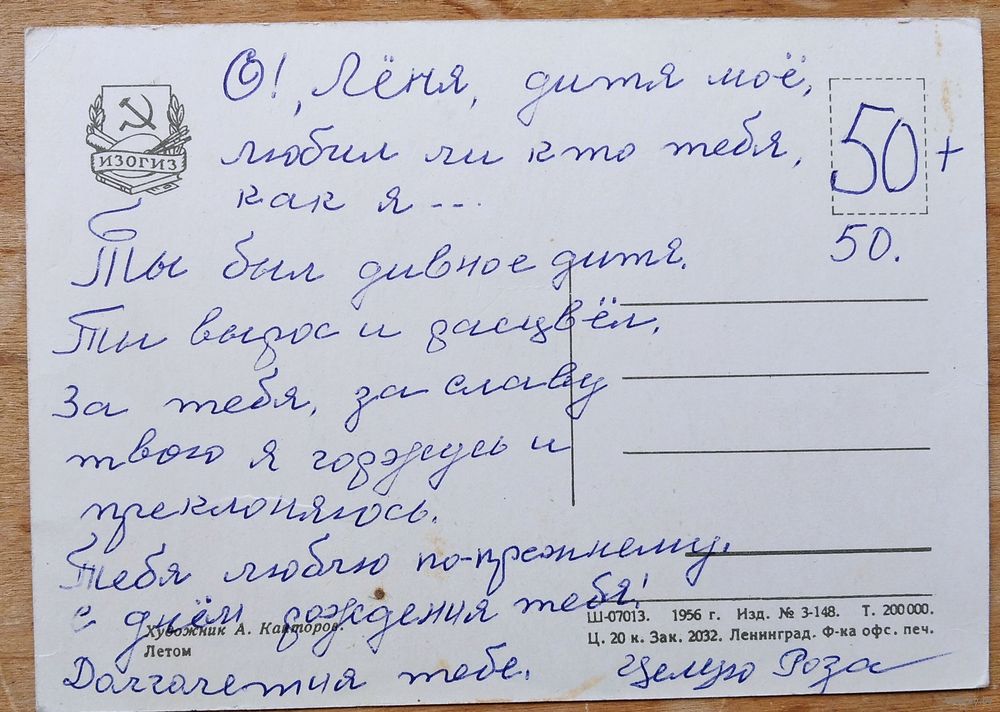 ИЗОГИЗ
О! Лёня, дитя моё,
любил ли кто тебя,
как я ---
50 +
50.
Ты был дивное дитя.
Ты вырос и расцвёл.
За тебя, за славу
твою я горжусь и
преклоняюсь.
Тебя люблю по-прежнему.
С днём рождения тебя!
Долголетия тебе. Целую Роза
Художник А. Канторов.
Летом
Ш-07013. 1956 г. Изд. № 3-148. Т. 200 000.
Ц. 20 к. Зак. 2032. Ленинград. Ф-ка офс. печ.